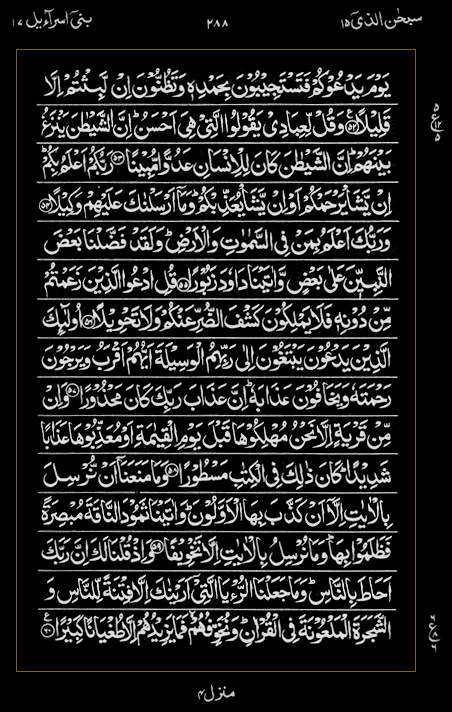 سبحٰن الذی ۱۵ ۲۸۸ بنی اسرآءیل ۱۷
يَوْمَ يَدْعُوْكُمْ فَتَسْتَجِيْبُوْنَ بِحَمْدِهٖ وَتَظُنُّوْنَ اِنْ لَّبِثْتُمْ اِلَّا
قَلِيْلًا ۵۲ وَقُلْ لِّعِبَادِيْ يَقُوْلُوا الَّتِيْ هِيَ اَحْسَنُ ؕ اِنَّ الشَّيْطٰنَ يَنْزَغُ
بَيْنَهُمْ ؕ اِنَّ الشَّيْطٰنَ كَانَ لِلْاِنْسَانِ عَدُوًّا مُّبِيْنًا ۵۳ رَبُّكُمْ اَعْلَمُ بِكُمْ ؕ
اِنْ يَّشَاْ يَرْحَمْكُمْ اَوْ اِنْ يَّشَاْ يُعَذِّبْكُمْ ؕ وَمَاۤ اَرْسَلْنٰكَ عَلَيْهِمْ وَكِيْلًا ۵۴
وَرَبُّكَ اَعْلَمُ بِمَنْ فِي السَّمٰوٰتِ وَالْاَرْضِ ؕ وَلَقَدْ فَضَّلْنَا بَعْضَ
النَّبِيّٖنَ عَلٰى بَعْضٍ وَّاٰتَيْنَا دَاوٗدَ زَبُوْرًا ۵۵ قُلِ ادْعُوا الَّذِيْنَ زَعَمْتُمْ
مِّنْ دُوْنِهٖ فَلَا يَمْلِكُوْنَ كَشْفَ الضُّرِّ عَنْكُمْ وَلَا تَحْوِيْلًا ۵۶ اُولٰٓئِكَ
الَّذِيْنَ يَدْعُوْنَ يَبْتَغُوْنَ اِلٰى رَبِّهِمُ الْوَسِيْلَةَ اَيُّهُمْ اَقْرَبُ وَيَرْجُوْنَ
رَحْمَتَهٗ وَيَخَافُوْنَ عَذَابَهٗ ؕ اِنَّ عَذَابَ رَبِّكَ كَانَ مَحْذُوْرًا ۵۷ وَاِنْ
مِّنْ قَرْيَةٍ اِلَّا نَحْنُ مُهْلِكُوْهَا قَبْلَ يَوْمِ الْقِيٰمَةِ اَوْ مُعَذِّبُوْهَا عَذَابًا
شَدِيْدًا ؕ كَانَ ذٰلِكَ فِي الْكِتٰبِ مَسْطُوْرًا ۵۸ وَمَا مَنَعَنَاۤ اَنْ نُّرْسِلَ
بِالْاٰيٰتِ اِلَّاۤ اَنْ كَذَّبَ بِهَا الْاَوَّلُوْنَ ؕ وَاٰتَيْنَا ثَمُوْدَ النَّاقَةَ مُبْصِرَةً
فَظَلَمُوْا بِهَا ؕ وَمَا نُرْسِلُ بِالْاٰيٰتِ اِلَّا تَخْوِيْفًا ۵۹ وَاِذْ قُلْنَا لَكَ اِنَّ رَبَّكَ
اَحَاطَ بِالنَّاسِ ؕ وَمَا جَعَلْنَا الرُّءْيَا الَّتِيْۤ اَرَيْنٰكَ اِلَّا فِتْنَةً لِّلنَّاسِ وَ
الشَّجَرَةَ الْمَلْعُوْنَةَ فِي الْقُرْاٰنِ ؕ وَنُخَوِّفُهُمْ ۙ فَمَا يَزِيْدُهُمْ اِلَّا طُغْيَانًا كَبِيْرًا ۶۰
منزل ۴